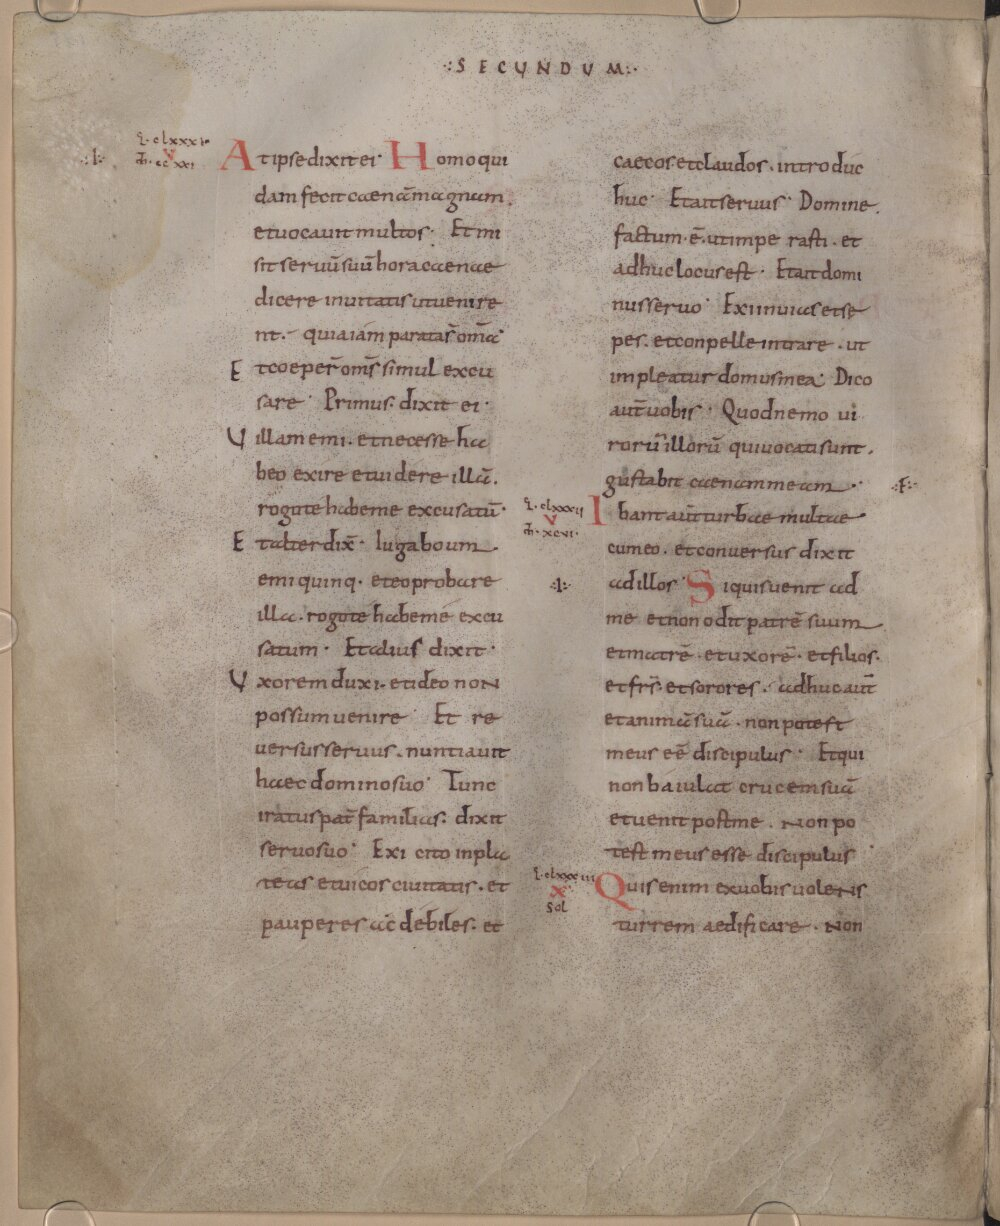 ·:SECUNDUM:·
L·clxxxi·
v
M·ccxxi
·:I:·
At ipse dixit ei· Homo qui
dam fecit caenā magnam.
et uocauit multos· Et mi
sit seruū suū hora caenae
dicere inuitatis ut uenire
nt· quia iam parata sr̄ omīa·
Et coeper̄ om̄s simul excu
sare· Primus· dixit ei·
Uillam emi· et necesse ha
beo exire et uidere illā.
rogo te habe me excusatū·
Et alter dix̄· Iuga boum
emi quinq· et eo probare
illa· rogo te habe me excu
satum· Et alius dixit·
Uxorem duxi· et ideo non
possum uenire· Et re
uersus seruus· nuntiauit
haec domino suo· Tunc
iratus pat̄ familias· dixit
seruo suo· Exi cito in pla
teas et uicos ciuitatis· et
pauperes ac debiles· et
caecos et claudos· introduc
huc· Et ait seruus· Domine·
factum· ē· ut imperasti· et
adhuc locus est· Et ait domi
nus seruo· Exi in uias et se
pes· et conpelle intrare· ut
impleatur domus mea· Dico
aut̄ uobis· Quod nemo ui
rorū illorū qui uocati sunt·
gustabit caenam meam·
·:F:·
L·clxxxii
v
M·xcvi·
Ibant aut̄ turbae multae
cum eo· et conuersus dixit
·:I:·
ad illos· Si quis uenit ad
me et non odit patrē suum
et matrē· et uxorē· et filios·
et fr̄s· et sorores· adhuc aut̄
et animā suā· non potest
meus eē discipulus· Et qui
non baiulat crucem suā
et uenit post me· Non po
test meus esse discipulus
L·clxxxiii
x
Sol
Quis enim ex uobis uolens
turrem aedificare· Non